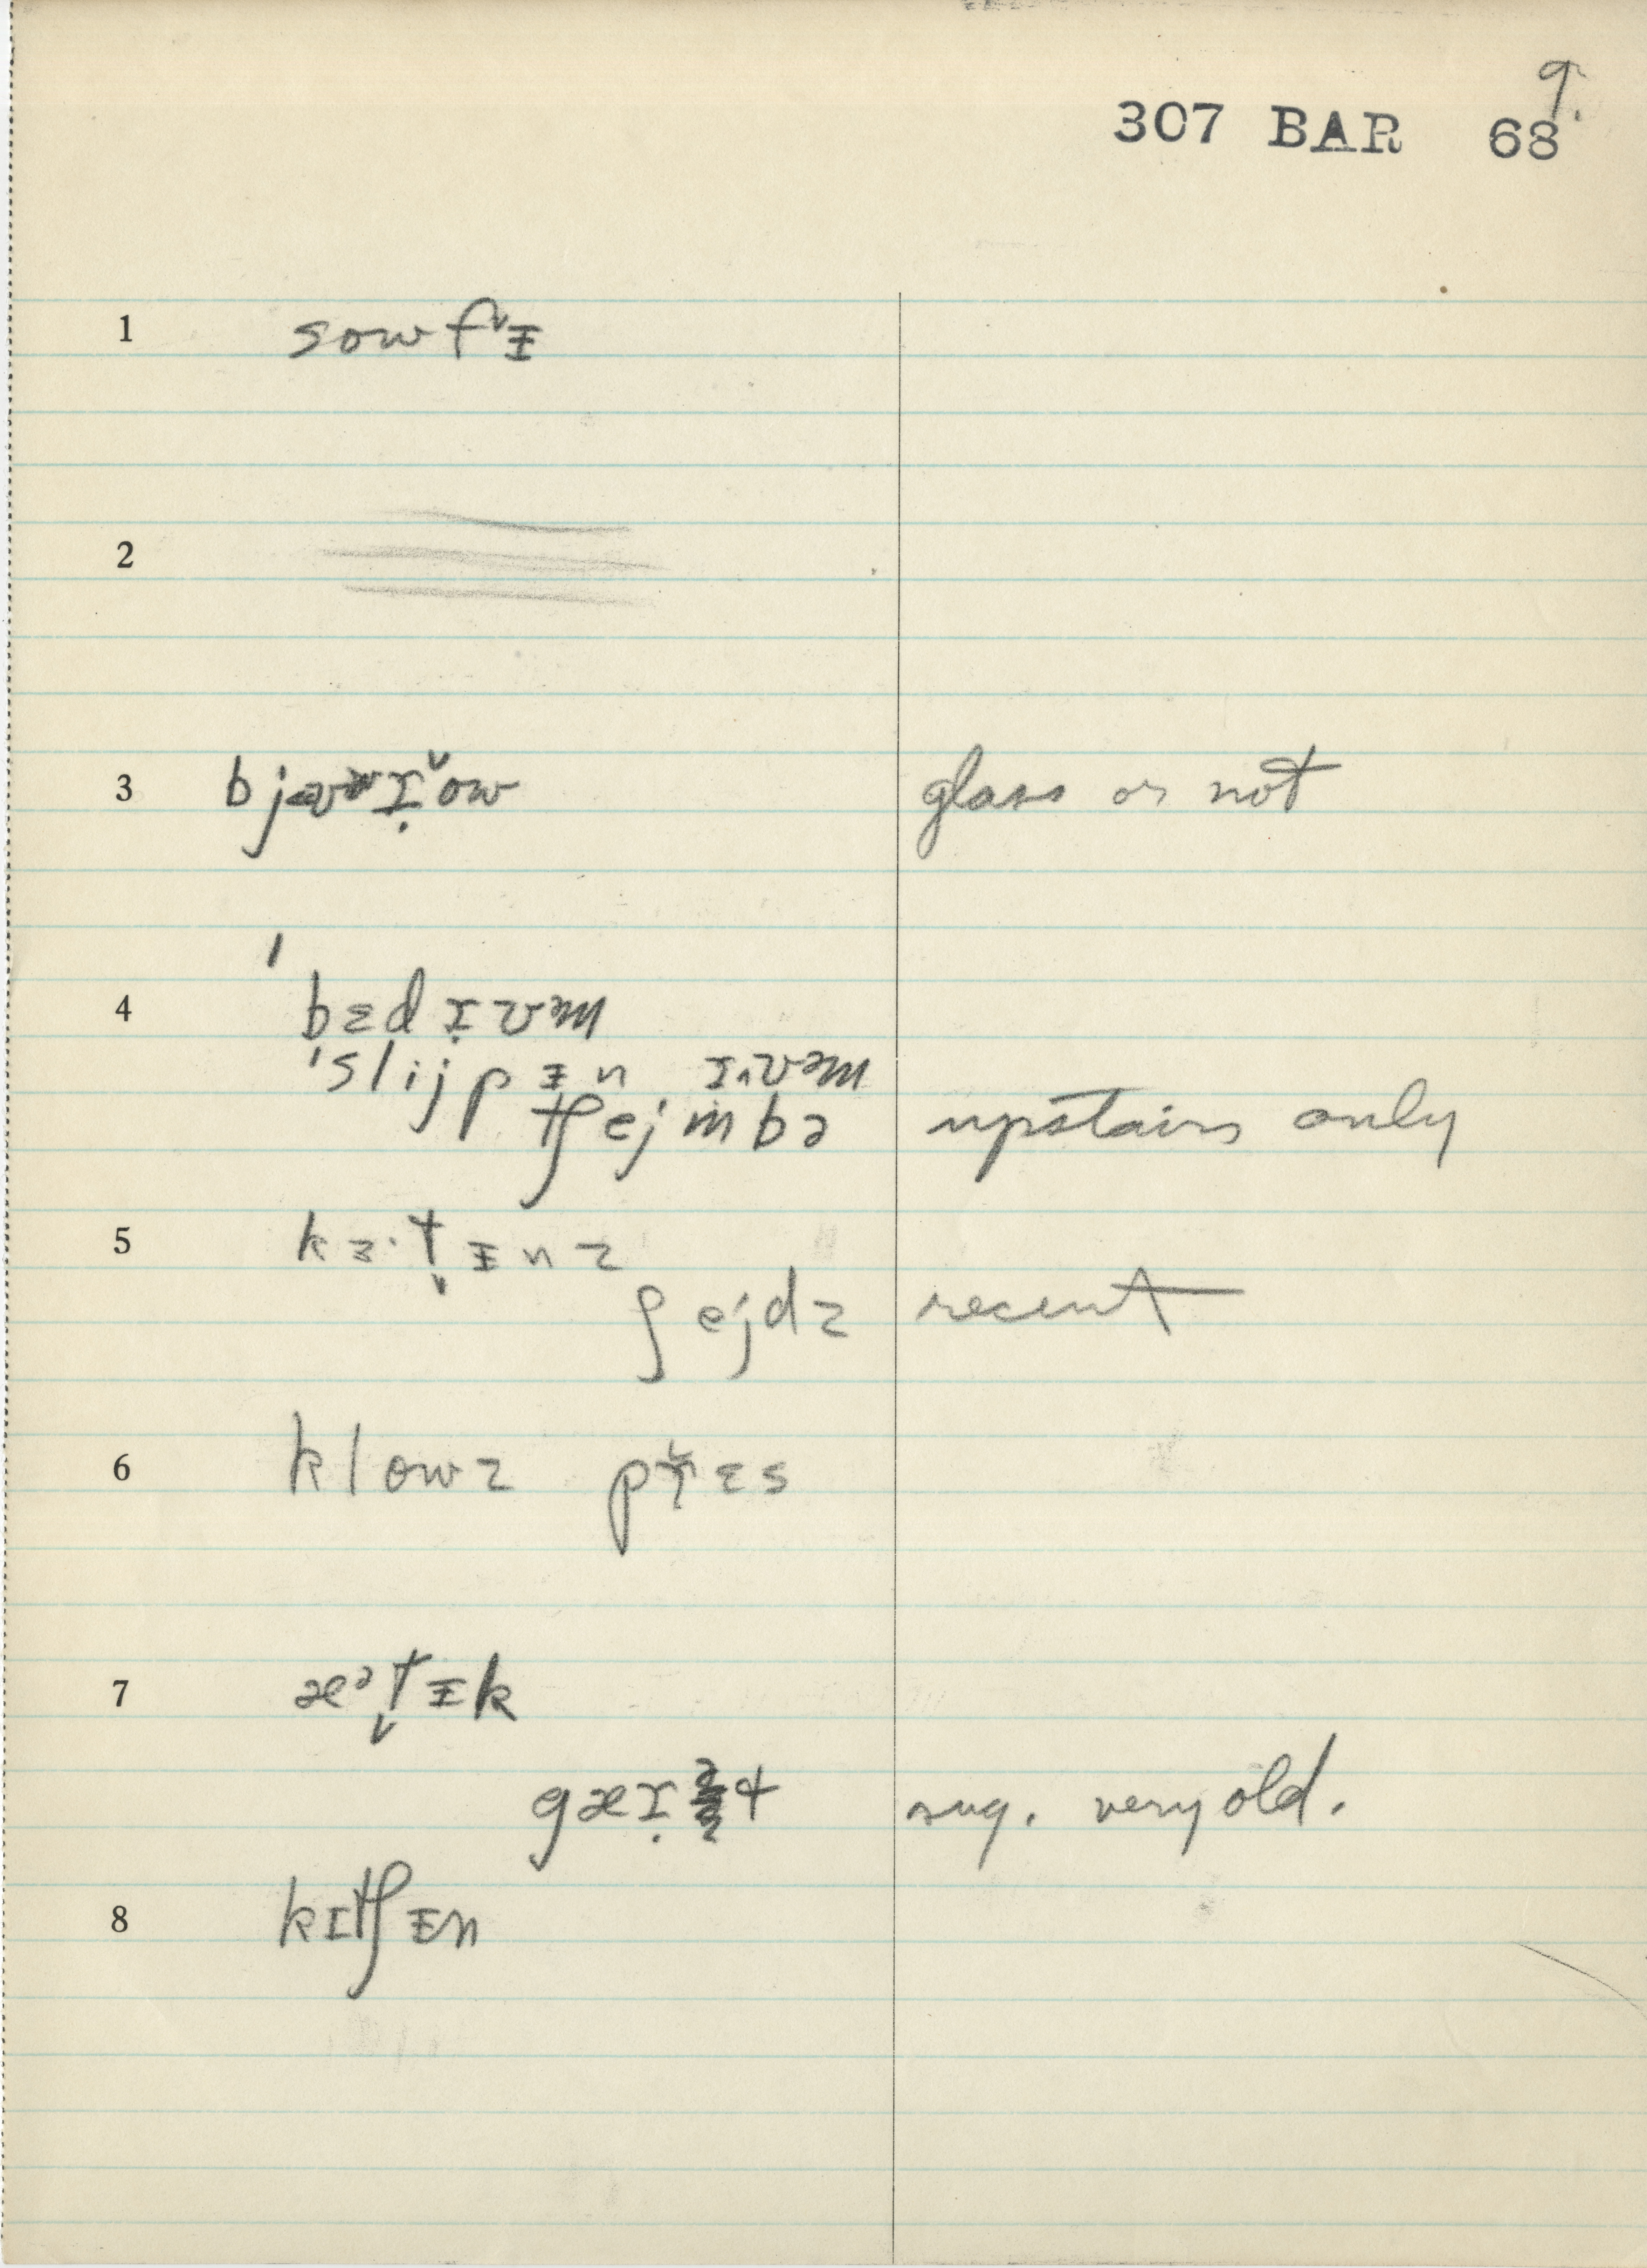 9.
307 BAR 68
1 sowf˅ᵻ
2
3 glass or not
4 ˈbɛdɹ̣ʊm
ˈslijpᵻn ɹʊm
tʃejmbə upstairs only
5 kɜ·t̬ᵻnz
ʃejdz recent
6 klowz pɹ̌ɛs
7 æᵊt̬ᵻk
sug. very old.
8 kɪtʃᵻn